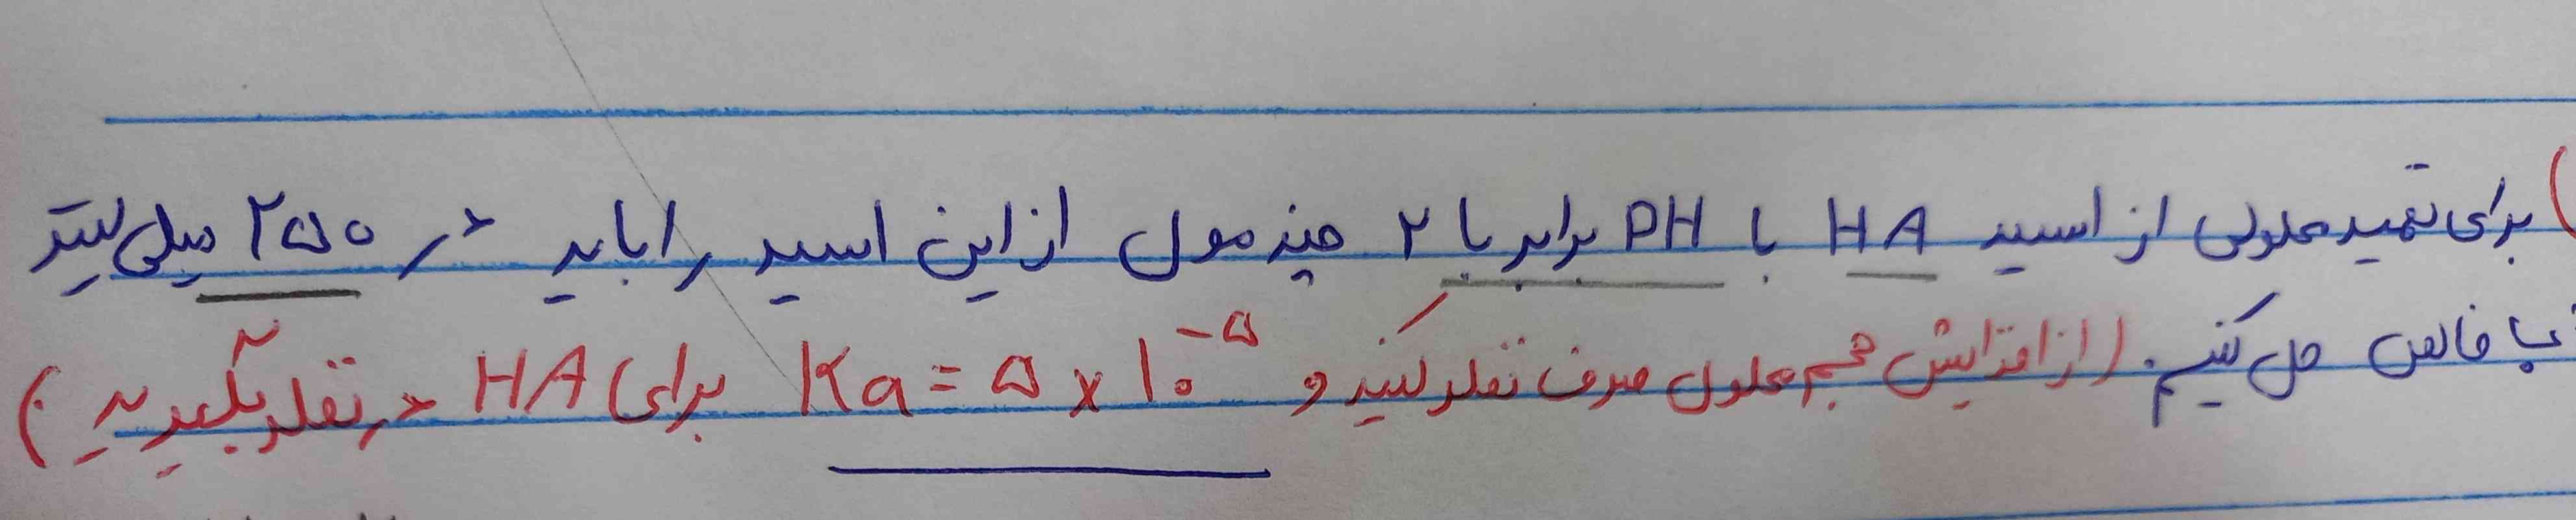 ) برای تهیه محلولی از اسید HA با PH برابر با ۲ چند مول از این اسید را باید در ۲۵۰ میلی لیتر
آب خالص حل کنیم. (از افزایش حجم محلول صرف نظر کنید و Ka = ۵ × ۱۰⁻⁵ برای HA در نظر بگیرید.)